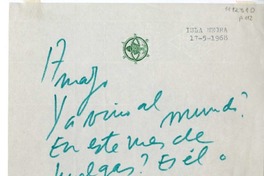 ISLA NEGRA
17-5-1968
17
mayo
Ya vino al mundo?
En este mes de
huelgas? Es él o